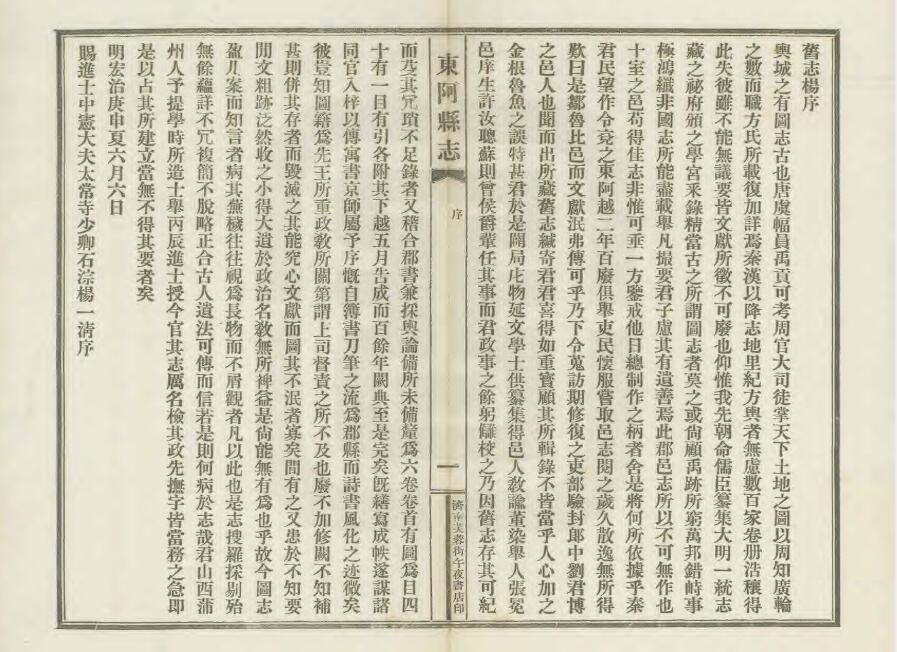 舊志楊序
輿城之有圖志古也唐虞幅員禹貢可考周官大司徒掌天下土地之圖以周知廣輪
之數而職方氏所載復加詳焉秦漢以降志地里紀方輿者無慮數百家卷册浩穰得
此失彼雖不能無議要皆文獻所徵不可廢也仰惟我先朝命儒臣纂集大明一統志
藏之祕府頒之學宮釆錄精當古之所謂圖志者莫之或尙顧禹跡所窮萬邦錯峙事
極鴻纖非國志所能盡載舉凡撮要君子慮其有遺善焉此郡邑志所以不可無作也
十室之邑苟得佳志非惟可垂一方鑒戒他日總制作之柄者舍是將何所依據乎秦
君民望作令兗之東阿越二年百廢俱舉吏民懷服嘗取邑志閱之歲久散逸無所得
歎曰是鄒魯比邑而文獻泯弗傳可乎乃下令蒐訪期修復之吏部驗封郎中劉君博
之邑人也聞而出所藏舊志緘寄君君喜得如重寶顧其所輯錄不皆當乎人心加之
金根魯魚之誤特甚君於是闢局庀物延文學士供纂集得邑人敎諭董染舉人張冕
邑庠生許汝聰蘇則曾侯爵輩任其事而君政事之餘躬讎校之乃因舊志存其可紀
東阿縣志
序
一
濟南芙蓉街午夜書店印
而芟其冗瑣不足錄者又稽合郡書兼採輿論備所未備釐爲六卷卷首有圖爲目四
十有一目有引各附其下越五月告成而百餘年闕典至是完矣旣繕寫成帙遂謀諸
同官入梓以傳寓書京師屬予序慨自簿書刀筆之流爲郡縣而詩書風化之迹微矣
彼豈知圖籍爲先王所重政敎所關第謂上司督責之所不及也廢不加修闕不知補
甚則併其存者而毀滅之其能究心文獻而圖其不泯者寡矣間有之又患於不知要
閒文粗跡泛然收之小得大遺於政治名敎無所裨益是尙能無有爲也乎故今圖志
盈几案而知言者病其蕪穢往往視爲長物而不屑觀者凡以此也是志搜羅採剔殆
無餘蘊詳不冗複簡不脫略正合古人遺法可傳而信若是則何病於志哉君山西蒲
州人予提學時所造士舉丙辰進士授今官其志厲名檢其政先撫字皆當務之急即
是以占其所建立當無不得其要者矣
明宏治庚申夏六月六日
賜進士中憲大夫太常寺少卿石淙楊一清序